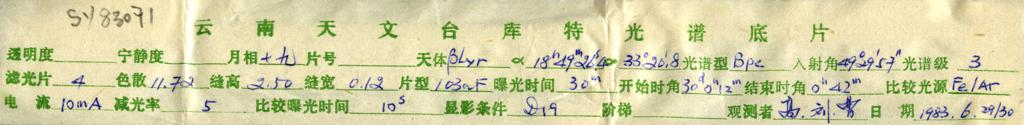 SY83071
云南天文台库特光谱底片
透明度 宁静度 月相十九 片号 天体βLyr α 18ʰ49ᵐ26ˢ δ 33°20′.8 光谱型 Bpe 入射角49°29′57″ 光谱级 3
滤光片 4 色散 11.72 缝高 2.50 缝宽 0.12 片型 103aF 曝光时间 30ᵐ 开始时角 0ʰ12ᵐ 结束时角 0ʰ42ᵐ 比较光源 Fe/Ar
电流 10mA 减光率 5 比较曝光时间 10ˢ 显影条件 D19 阶梯 观测者 高.刘. 日期 1983.6.29/30